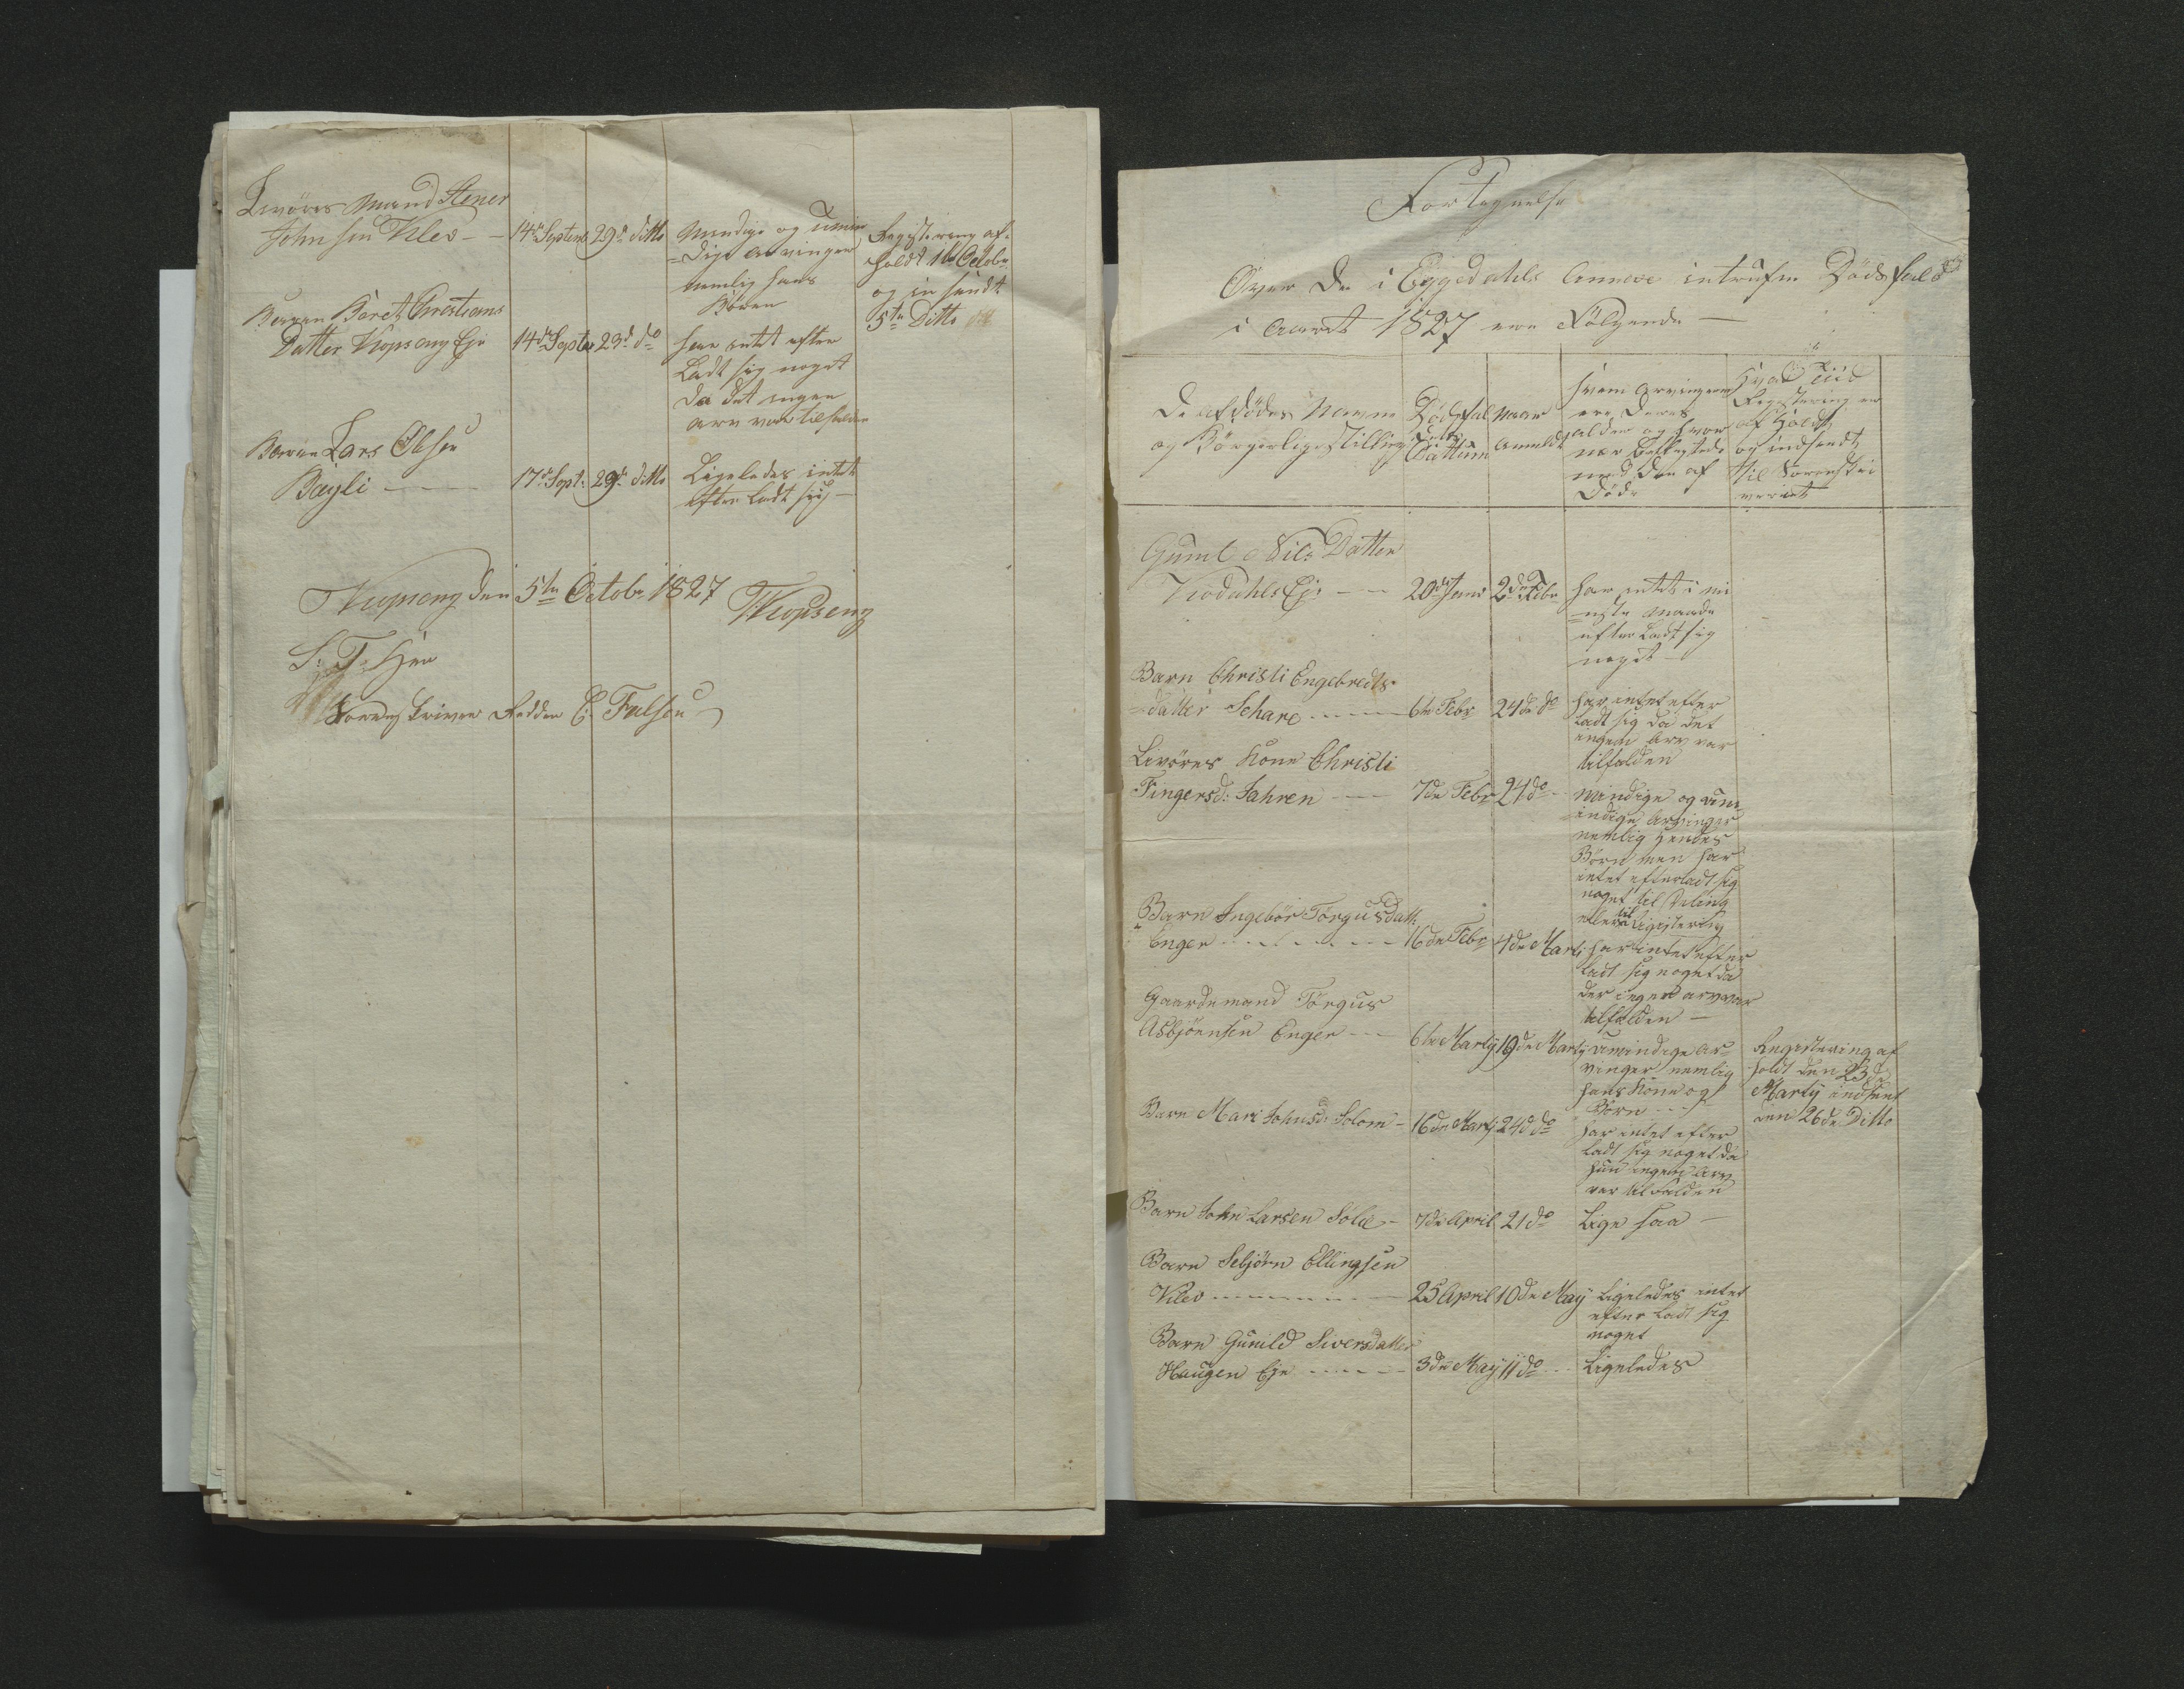 Levöres Mand Stener
John sen Kleo - 14de Septem 29de ditto Mundige og Umün
=dige arvinger
nemlig hans
Börn
Registering af-
holdt 1te Octobr
og in sendt
5te Ditto
Barnn Boret Christians
Datter Kopseng Eje 14de Septe 23d do har intet efter
Ladt sig noget
da det ingen
arv var tilfalden
Barnn Lars Olsen
Bagli - 17de Sept: 29de ditto Ligeledes intet
efter ladt sig -
Kopseng den 5te Octobr 1827 Kopseng
S: T: Herr
Sorenskriver Redder C: Falsen
Fortegnelse
Over de i Eggedahls Annexe intrufne Dödsfald
i Aaret 1827 ere Fölgende -
De afdödes Navne
og Börgerlige Stilling
Dödsfal
dets
Dattum
Naar
Anmeldt
Hvem Arvingerne
ere, deres
alder og hvor
nær beslegtede
med den af
Döde
Hvad Tiid
Registering er
af holdt
og indsendt
til Sorenskri
veriet
Guml Nils Datter
Kiodahls Eje - 20de Janr 2de Febr har intet i mi
=nste Maade
efter Ladt sig
noget -
Barn Christi Engebredts-
=datter Schare - 6te Febr 24de do har intet efter
ladt sig da det
ingen Arv var
tilfalden
Levöres Kone Christi
Fingersd: Jahren - 7de Febr 24 do - Mündige og um=
ündige Arvinger
nemlig hendes
Börn men har
intet efterladt sig
noget til Deling
eller til Registering
Barn Ingebör Torgusdatt
Enger - 16de Febr 4de Marti har intet efter
ladt sig noget da
der ingen arv var
tilfalden -
Gaardemand Torgus
Asbjörnsen Enger - 6te Martÿ 19de Martÿ umündige Ar=
vinger nemlig
hans Kone og
Börn -
Registering af
holdt den 23de
Martÿ indsent
den 26de Ditto
Barn Mari Johnsd: Solom - 16de Martÿ 24d do har intet efter
ladt sig noget da
hun ingen Arv
var tilfalden
Barn John Larsen Solie - 7de April 21 do Lige saa -
Barn Sebjörn Ellingsen
Kleo - 25 April 10de Maÿ Ligeledes intet
efter ladt sig
noget
Barn Gunild Siversdatter
Haugen Eje - 3de Maÿ 11 do - Ligeledes